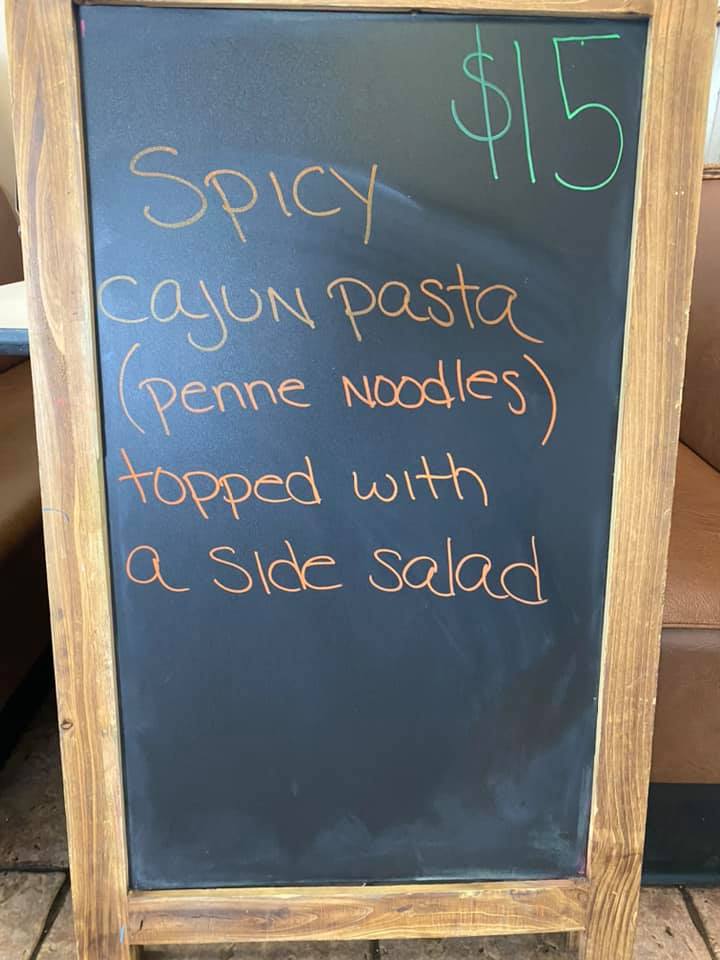 $15
Spicy
Cajun pasta
(penne Noodles)
topped with
a side salad